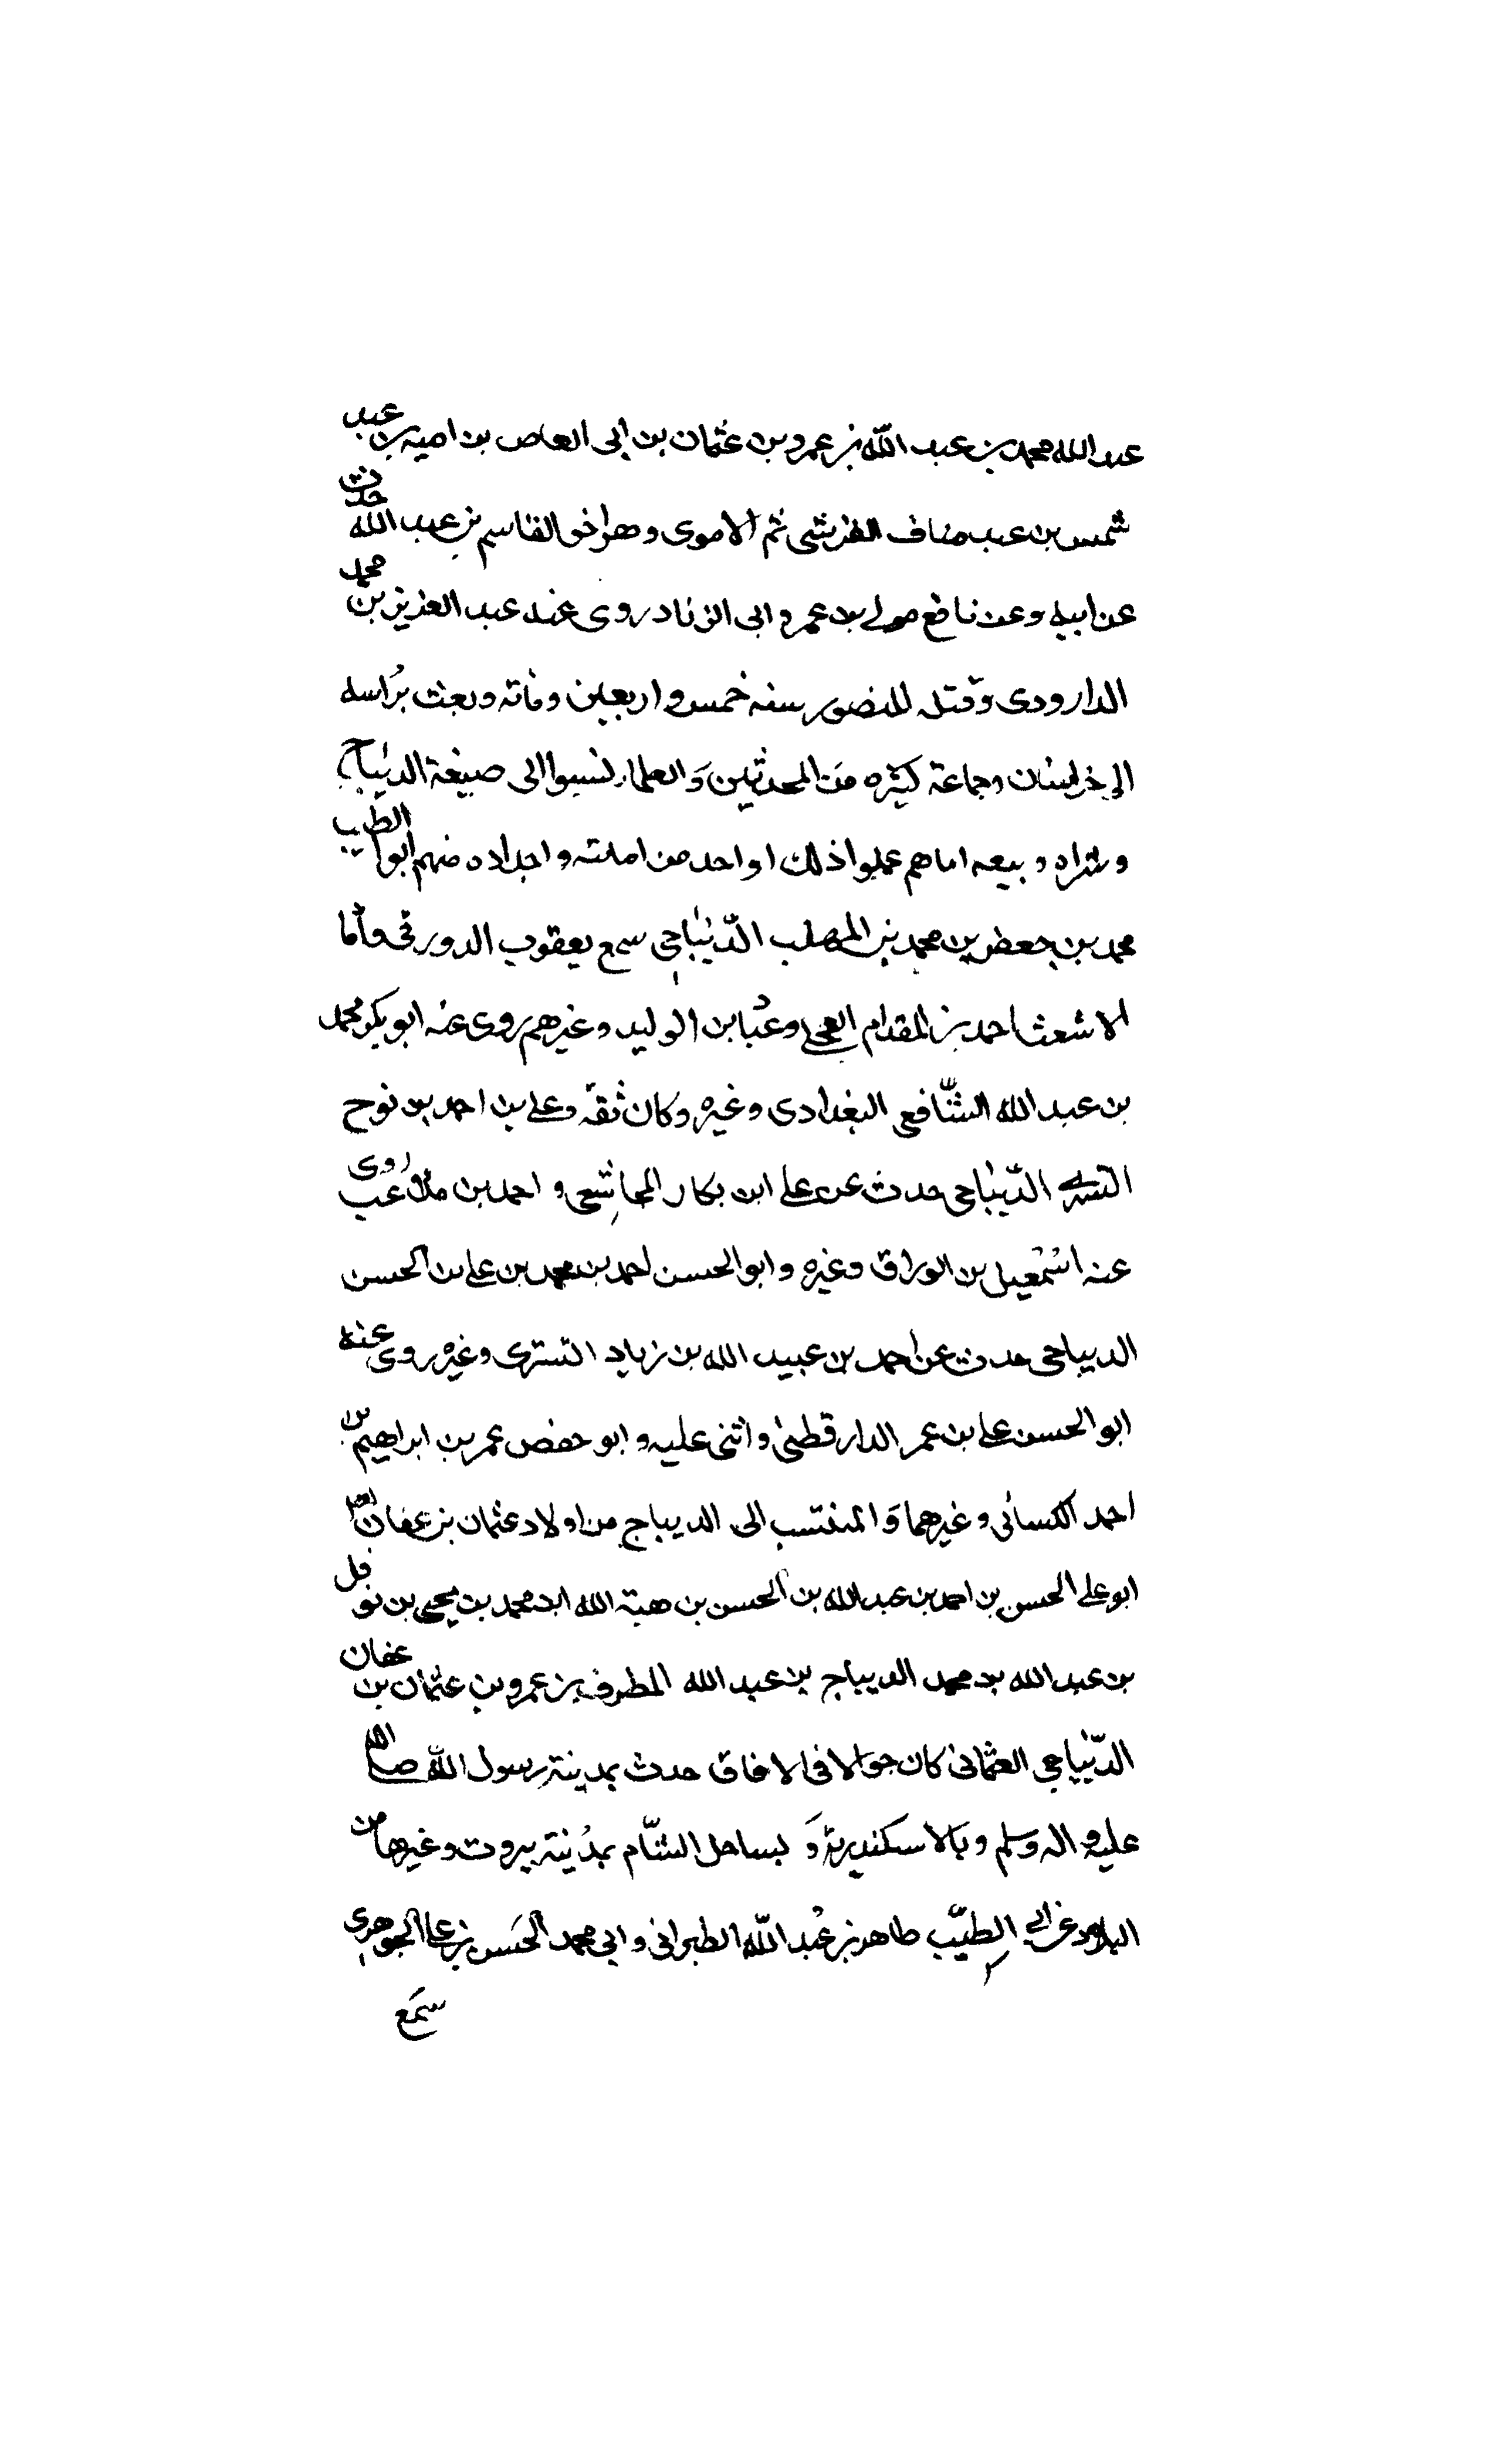 عبد الله محمد بن عبد الله بن عمرو بن عثمان بن ابى العاص بن اميه بن عبد
شمس بن عبد مناف القرشى ثم الاموى وهو اخو القاسم بن عبد الله حدث
عن ابيه وعن نافع مولى بن عمر و ابى الزناد روى عنه عبد العزيز بن محمد
الداروردى وقتله المنصور سنه خمس و اربعين ومائه وبعث براسه
الى خراسان وجماعة كثيره من المحدثين والعلماء نسبوا الى صيغة الديباج
وشراه وبيعه اما هم عملوا ذلك او احد من اهله و اجداده منهم ابو الطيب
محمد بن جعفر بن محمد بن المهلب الديباجى سمع يعقوب الدورقى وابا
الاشعث احمد بن المقدام العجلى وعباد بن الوليد وغيرهم روى عنه ابو بكر محمد
بن عبد الله الشافعى البغدادى وغيره وكان ثقة وعلى بن احمد بن نوح
التسترى الديباجى حدث عن على ابن بكار المجاشعى و احمد بن روى
عنه اسمعيل بن الوراق وغيره وابو الحسن احمد بن محمد بن على بن الحسن
الديباجى حدث عن احمد بن عبيد الله بن زياد التسترى وغيره روى عنه
ابو الحسن على بن عمر الدار قطنى واثنى عليه و ابو حفص عمر بن ابراهيم بن
احمد الكسائى وغيرهما والمنتسب الى الديباج من اولاد عثمان بن عفان
ابو على الحسن بن احمد بن عبد الله بن الحسن بن هبة الله ابن محمد بن يحيى بن نوفل
بن عبد الله بن محمد الديباج بن عبد الله المطرف بن عمرو بن عثمان بن عفان
الديباجى العثمانى كان جوالا فى الافاق حدث بمدينة رسول الله صلى الله
عليه واله وسلم وبالاسكندرية و بساحل الشام بمدينة بيروت وغيرها من
البلاد عن ابى الطيب طاهر بن عبد الله الطبرانى و ابى محمد الحسن بن على الجوهرى
سمع